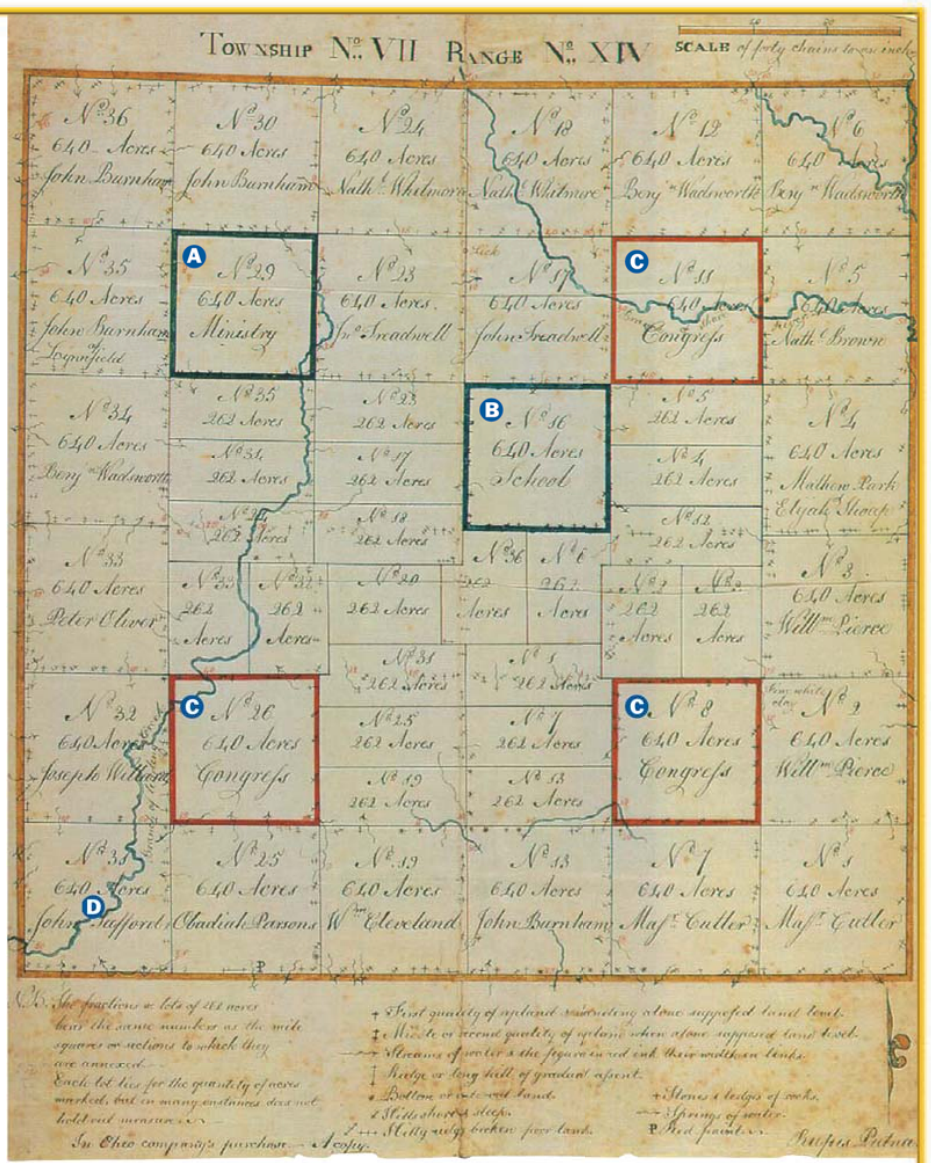 TOWNSHIP No. VII RANGE No. XIV
SCALE of forty chains to an inch
No 36
640 Acres
John Burnham
No 30
640 Acres
John Burnham
No 24
640 Acres
Nathl Whitmore
No 18
640 Acres
Nathl Whitmore
No 12
640 Acres
Benjn Wadsworth
No 6
640 Acres
Benjn Wadsworth
No 35
640 Acres
John Burnham
of
Lynnfield
A
No 29
640 Acres
Ministry
No 23
640 Acres
Jno Treadwell
Lick
No 17
640 Acres
John Treadwell
C
No 11
640 Acres
Congress
No 5
640 Acres
Nathl Brown
No 34
640 Acres
Benjn Wadsworth
No 35
262 Acres
No 34
262 Acres
262 Acres
No 23
262 Acres
No 17
262 Acres
No 18
262 Acres
B
No 16
640 Acres
School
No 5
262 Acres
No 4
262 Acres
No 12
262 Acres
No 4
640 Acres
Mathew Park
Elijah
No 33
640 Acres
Peter Oliver
No 33
262
Acres
262
Acres
No 20
262 Acres
No 36
262
Acres
No 6
262
Acres
No 2
262
Acres
262
Acres
No 3
640 Acres
Willm Pierce
No 31
262 Acres
No 1
262 Acres
No 32
640 Acres
Joseph William
C
No 26
640 Acres
Congress
No 25
262 Acres
No 19
262 Acres
No 7
262 Acres
No 13
262 Acres
C
No 8
640 Acres
Congress
Fine white
clay
No 2
640 Acres
Willm Pierce
No 31
640 Acres
D
John Safford
No 25
640 Acres
Obadiah Parsons
No 19
640 Acres
Wm Cleveland
No 13
640 Acres
John Burnham
No 7
640 Acres
Massr Cutler
No 1
640 Acres
Massr Cutler
P
N.B. The fractions or lots of 262 acres
bear the same numbers as the mile
squares or sections to which they
are annexed
Each lot lies for the quantity of acres
marked, but in many instances does not
hold out measure
In Ohio company's purchase. A copy.
First quality of upland
Middle or second quality of upland when alone supposed land level.
Streams of water & the figure in red ink their width in links.
Ridge or long hill of gradual ascent.
Bottom or land.
Hills short & steep.
Hilly ridgy broken poor land.
Stones & ledges of rocks.
Springs of water.
P Red paint
Rufus Putnam